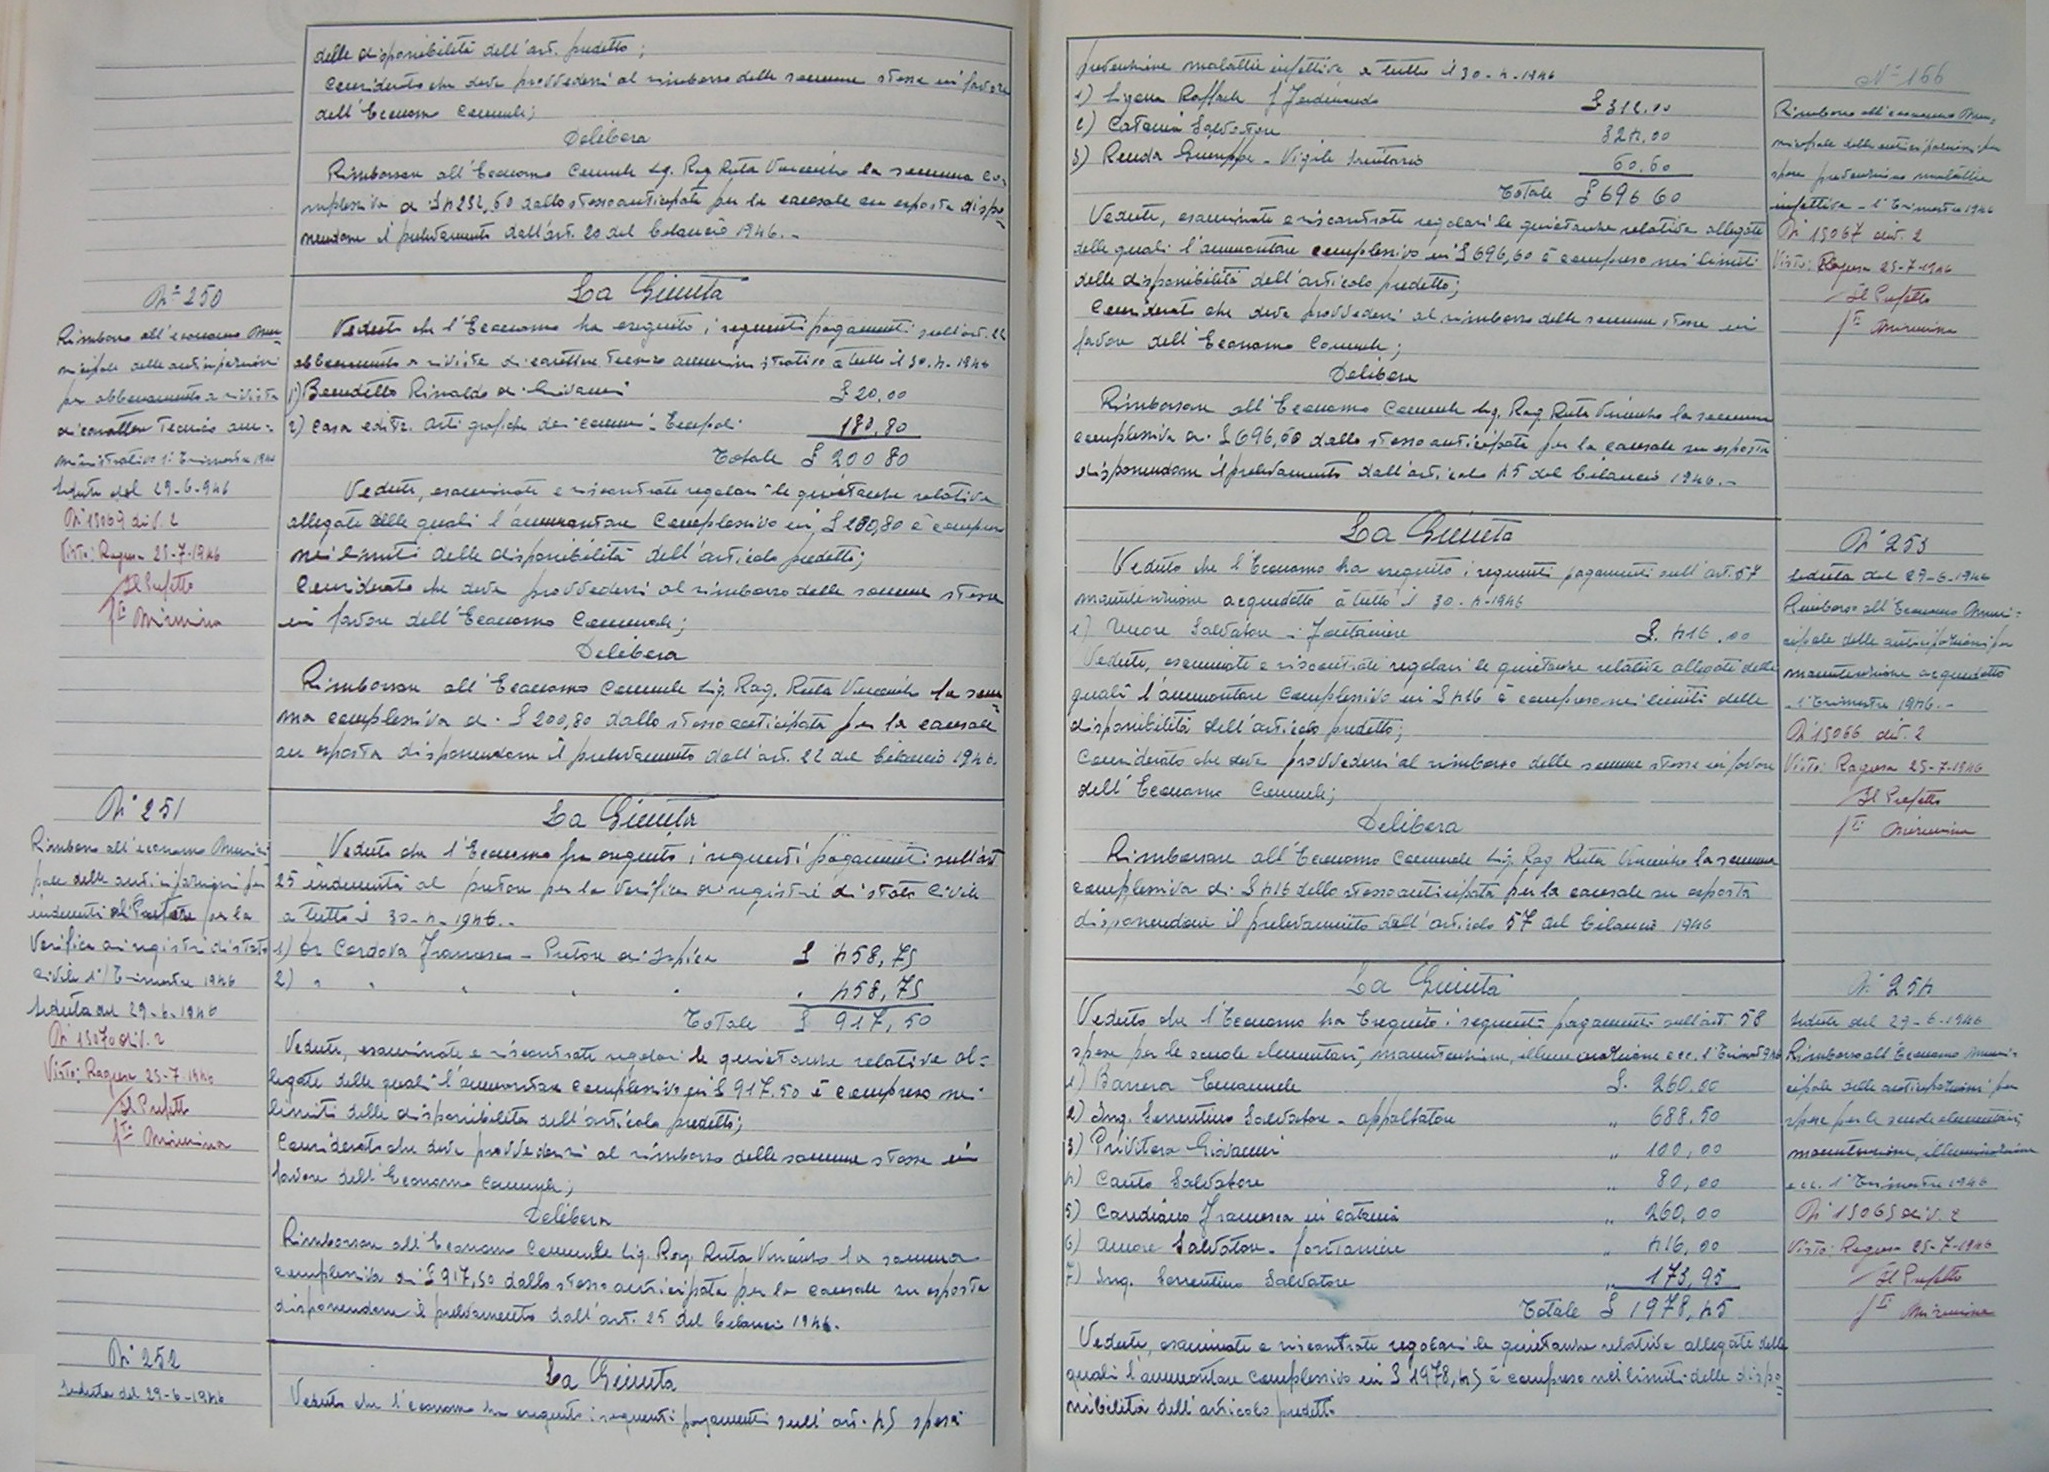 delle disponibilità dell'art. predetto;
Considerato che deve provvedersi al rimborso delle somme stesse in favore
dell'Economo Comunale;
Delibera
Rimborsare all'Economo Comunale Sig. Rag. Ruta Vincenzo la somma co-
mplessiva di £ 4232,60 dallo stesso anticipata per la causale su esposta dispo-
nendone il prelevamento dall'art. 20 del bilancio 1946.-
N° 250
Rimborso all'economo Mu-
nicipale delle anticipazioni
per abbonamento a riviste
di carattere Tecnico am-
ministrativo 1° Trimestre 1946
Seduta del 29-6-946
N° 15069 div. 2
Visto: Ragusa 25-7-1946
Il Prefetto
fto Mirmina
La Giunta
Veduto che l'Economo ha eseguito i seguenti pagamenti sull'art. 22
abbonamento a riviste di carattere Tecnico amministrativo a tutto il 30-4-1946
1) Benedetto Rinaldo di Giovanni £ 20,00
2) Casa editr. arti grafiche dei comuni - Empoli 180,80
Totale £ 200 80
Vedute, esaminate e riscontrate regolari le quietanze relative
allegate delle quali l'ammontare complessivo in £ 200,80 è compreso
nei limiti delle disponibilità dell'articolo predetto;
Considerato che deve provvedersi al rimborso delle somme stesse
in favore dell'Economo Comunale;
Delibera
Rimborsare all'Economo Comunale Sig. Rag. Ruta Vincenzo la som-
ma complessiva di £ 200,80 dallo stesso anticipata per la causale
su esposta disponendone il prelevamento dall'art. 22 del bilancio 1946.
N° 251
Rimborso all'economo Munici-
pale delle anticipazioni per
indennità al Pretore per la
Verifica ai registri di stato
civile 1° Trimestre 1946
Seduta del 29-6-1946
N° 15070 div. 2
Visto: Ragusa 25-7-1946
Il Prefetto
fto Mirmina
La Giunta
Veduto che l'Economo ha eseguito i seguenti pagamenti sull'art
25 indennità al pretore per la Verifica ai registri di stato Civile
a tutto il 30-4-1946.-
1) Dr Cordova Francesco - Pretore di Ispica £ 458,75
2) " " " " " 458,75
Totale £ 917,50
Vedute, esaminate e riscontrate regolari le quietanze relative al-
legate delle quali l'ammontare complessivo in £ 917.50 è compreso nei
limiti delle disponibilità dell'articolo predetto;
Considerato che deve provvedersi al rimborso delle somme stesse in
favore dell'Economo Comunale;
Delibera
Rimborsare all'Economo Comunale Sig. Rag. Ruta Vincenzo la somma
complessiva di £ 917,50 dallo stesso anticipata per la causale su esposta
disponendone il prelevamento dall'art. 25 del bilancio 1946.
N° 252
Seduta del 29-6-1946
La Giunta
Veduto che l'economo ha eseguito i seguenti pagamenti sull'art. 45 spese
N° 166
prevenzione malattie infettive a tutto il 30-4-1946
1) Raffaele f. Ferdinando £ 312.00
2) Catania Salvatore 324,00
3) Renda Giuseppe - Vigile Sanitario 60.60
Totale £ 696 60
Rimborso all'economo Mu-
nicipale delle anticipazioni per
spese prevenzione malattie
infettive - 1° Trimestre 1946
N° 15067 div. 2
Visto: Ragusa 25-7-1946
Il Prefetto
fto Mirmina
Vedute, esaminate e riscontrate regolari le quietanze relative allegate
delle quali l'ammontare complessivo in £ 696,60 è compreso nei limiti
delle disponibilità dell'articolo predetto;
Considerato che deve provvedersi al rimborso delle somme stesse in
favore dell'Economo Comunale;
Delibera
Rimborsare all'Economo Comunale Sig. Rag. Ruta Vincenzo la somma
complessiva di £ 696,60 dallo stesso anticipata per la causale su esposta
disponendone il prelevamento dall'articolo 45 del bilancio 1946.-
La Giunta
Veduto che l'Economo ha eseguito i seguenti pagamenti sull'art. 57
manutenzione acquedotto a tutto il 30-4-1946
1) Amore Salvatore - Fontaniere £. 416.00
Vedute, esaminate e riscontrate regolari le quietanze relative allegate delle
quali l'ammontare complessivo in £ 416 è compreso nei limiti delle
disponibilità dell'articolo predetto;
Considerato che deve provvedersi al rimborso delle somme stesse in favore
dell'Economo Comunale;
Delibera
Rimborsare all'Economo Comunale Sig. Rag. Ruta Vincenzo la somma
complessiva di £ 416 dallo stesso anticipata per la causale su esposta
disponendone il prelevamento dall'articolo 57 del bilancio 1946
N° 253
Seduta del 29-6-1946
Rimborso all'Economo Muni-
cipale delle anticipazioni per
manutenzione acquedotto
1° Trimestre 1946.-
N° 15066 div. 2
Visto: Ragusa 25-7-1946
Il Prefetto
fto Mirmina
La Giunta
Veduto che l'Economo ha Eseguito i seguenti pagamenti sull'art. 58
spese per le scuole elementari, manutenzione, illuminazione ecc. 1° Trim 1946
1) Barrera Emanuele £. 260.00
2) Ing. Sorrentino Salvatore - appaltatore " 688.50
3) Privitera Giovanni " 100,00
4) Cauto Salvatore " 80,00
5) Candiano Francesca in Catania " 260,00
6) Amore Salvatore - fontaniere " 416,00
7) Ing. Sorrentino Salvatore " 173,95
Totale £ 1978,45
Vedute, esaminate e riscontrate regolari le quietanze relative allegate delle
quali l'ammontare complessivo in £ 1978,45 è compreso nei limiti delle dispo-
nibilità dell'articolo predetto
N° 254
Seduta del 29-6-1946
Rimborso all'Economo Muni-
cipale delle anticipazioni per
spese per le scuole elementari,
manutenzione, illuminazione
ecc. 1° Trimestre 1946
N° 15065 div. 2
Visto: Ragusa 25-7-1946
Il Prefetto
fto Mirmina